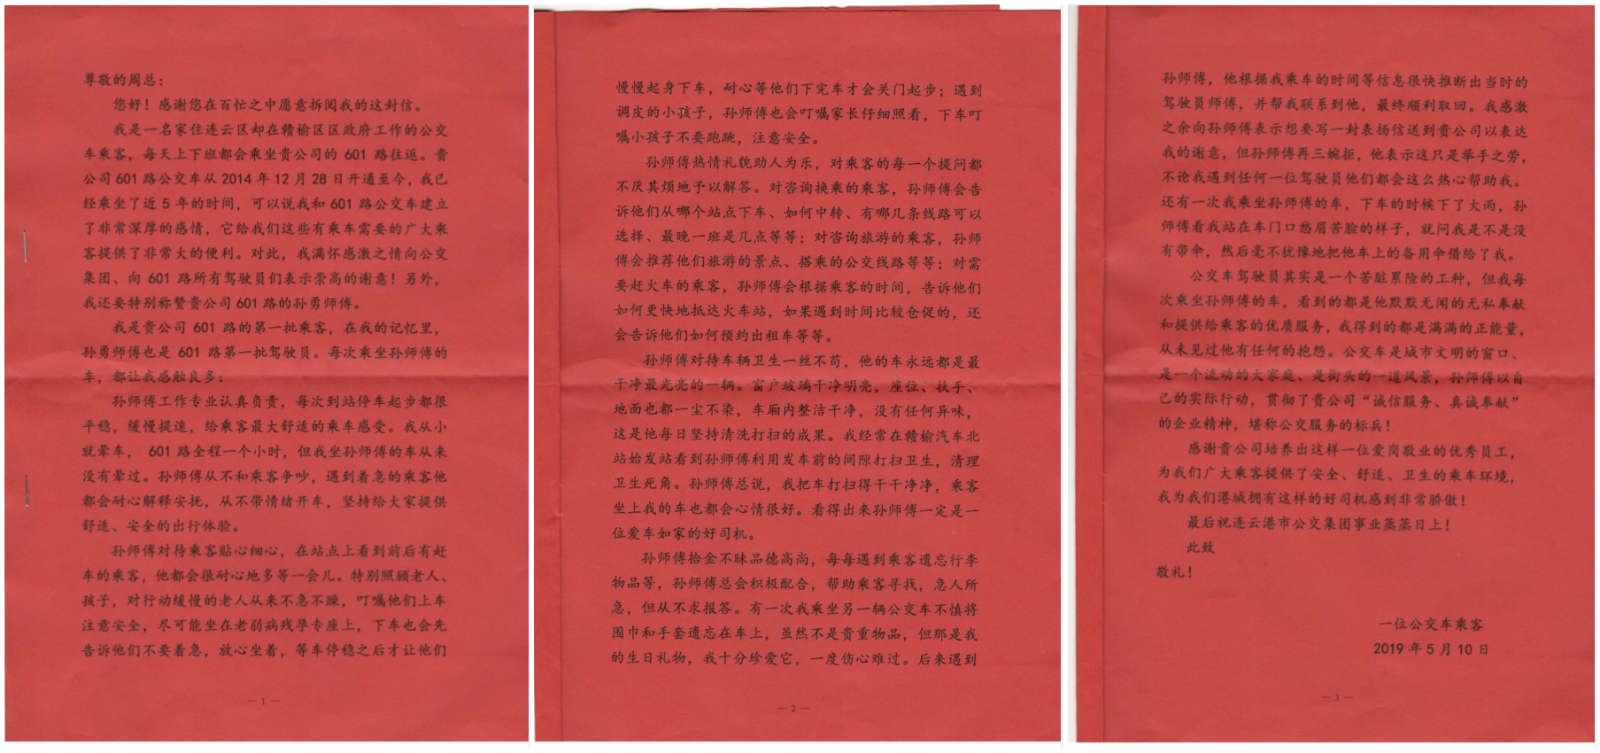 尊敬的周总：
您好！感谢您在百忙之中愿意拆阅我的这封信。
我是一名家住连云区却在赣榆区区政府工作的公交
车乘客，每天上下班都会乘坐贵公司的 601 路往返。贵
公司 601 路公交车从 2014 年 12 月 28 日开通至今，我已
经乘坐了近 5 年的时间，可以说我和 601 路公交车建立
了非常深厚的感情，它给我们这些有乘车需要的广大乘
客提供了非常大的便利。对此，我满怀感激之情向公交
集团、向 601 路所有驾驶员们表示崇高的谢意！另外，
我还要特别称赞贵公司 601 路的孙勇师傅。
我是贵公司 601 路的第一批乘客，在我的记忆里，
孙勇师傅也是 601 路第一批驾驶员。每次乘坐孙师傅的
车，都让我感触良多：
孙师傅工作专业认真负责，每次到站停车起步都很
平稳，缓慢提速，给乘客最大舒适的乘车感受。我从小
就晕车， 601 路全程一个小时，但我坐孙师傅的车从来
没有晕过。孙师傅从不和乘客争吵，遇到着急的乘客他
都会耐心解释安抚，从不带情绪开车，坚持给大家提供
舒适、安全的出行体验。
孙师傅对待乘客贴心细心，在站点上看到前后有赶
车的乘客，他都会很耐心地多等一会儿。特别照顾老人、
孩子，对行动缓慢的老人从来不急不躁，叮嘱他们上车
注意安全，尽可能坐在老弱病残孕专座上，下车也会先
告诉他们不要着急，放心坐着，等车停稳之后才让他们
— 1 —
慢慢起身下车，耐心等他们下完车才会关门起步；遇到
调皮的小孩子，孙师傅也会叮嘱家长仔细照看，下车叮
嘱小孩子不要跑跳，注意安全。
孙师傅热情礼貌助人为乐，对乘客的每一个提问都
不厌其烦地予以解答。对咨询换乘的乘客，孙师傅会告
诉他们从哪个站点下车、如何中转、有哪几条线路可以
选择、最晚一班是几点等等；对咨询旅游的乘客，孙师
傅会推荐他们旅游的景点、搭乘的公交线路等等；对需
要赶火车的乘客，孙师傅会根据乘客的时间，告诉他们
如何更快地抵达火车站，如果遇到时间比较仓促的，还
会告诉他们如何预约出租车等等。
孙师傅对待车辆卫生一丝不苟，他的车永远都是最
干净最光亮的一辆。窗户玻璃干净明亮，座位、扶手、
地面也都一尘不染，车厢内整洁干净，没有任何异味，
这是他每日坚持清洗打扫的成果。我经常在赣榆汽车北
站始发站看到孙师傅利用发车前的间隙打扫卫生，清理
卫生死角。孙师傅总说，我把车打扫得干干净净，乘客
坐上我的车也都会心情很好。看得出来孙师傅一定是一
位爱车如家的好司机。
孙师傅拾金不昧品德高尚，每每遇到乘客遗忘行李
物品等，孙师傅总会积极配合，帮助乘客寻找，急人所
急，但从不求报答。有一次我乘坐另一辆公交车不慎将
围巾和手套遗忘在车上，虽然不是贵重物品，但那是我
的生日礼物，我十分珍爱它，一度伤心难过。后来遇到
— 2 —
孙师傅，他根据我乘车的时间等信息很快推断出当时的
驾驶员师傅，并帮我联系到他，最终顺利取回。我感激
之余向孙师傅表示想要写一封表扬信送到贵公司以表达
我的谢意，但孙师傅再三婉拒，他表示这只是举手之劳，
不论我遇到任何一位驾驶员他们都会这么热心帮助我。
还有一次我乘坐孙师傅的车，下车的时候下了大雨，孙
师傅看我站在车门口愁眉苦脸的样子，就问我是不是没
有带伞，然后毫不犹豫地把他车上的备用伞借给了我。
公交车驾驶员其实是一个苦脏累险的工种，但我每
次乘坐孙师傅的车，看到的都是他默默无闻的无私奉献
和提供给乘客的优质服务，我得到的都是满满的正能量，
从未见过他有任何的抱怨。公交车是城市文明的窗口、
是一个流动的大家庭、是街头的一道风景，孙师傅以自
己的实际行动，贯彻了贵公司“诚信服务、真诚奉献”
的企业精神，堪称公交服务的标兵！
感谢贵公司培养出这样一位爱岗敬业的优秀员工，
为我们广大乘客提供了安全、舒适、卫生的乘车环境，
我为我们港城拥有这样的好司机感到非常骄傲！
最后祝连云港市公交集团事业蒸蒸日上！
此致
敬礼！
一位公交车乘客
2019 年 5 月 10 日
— 3 —